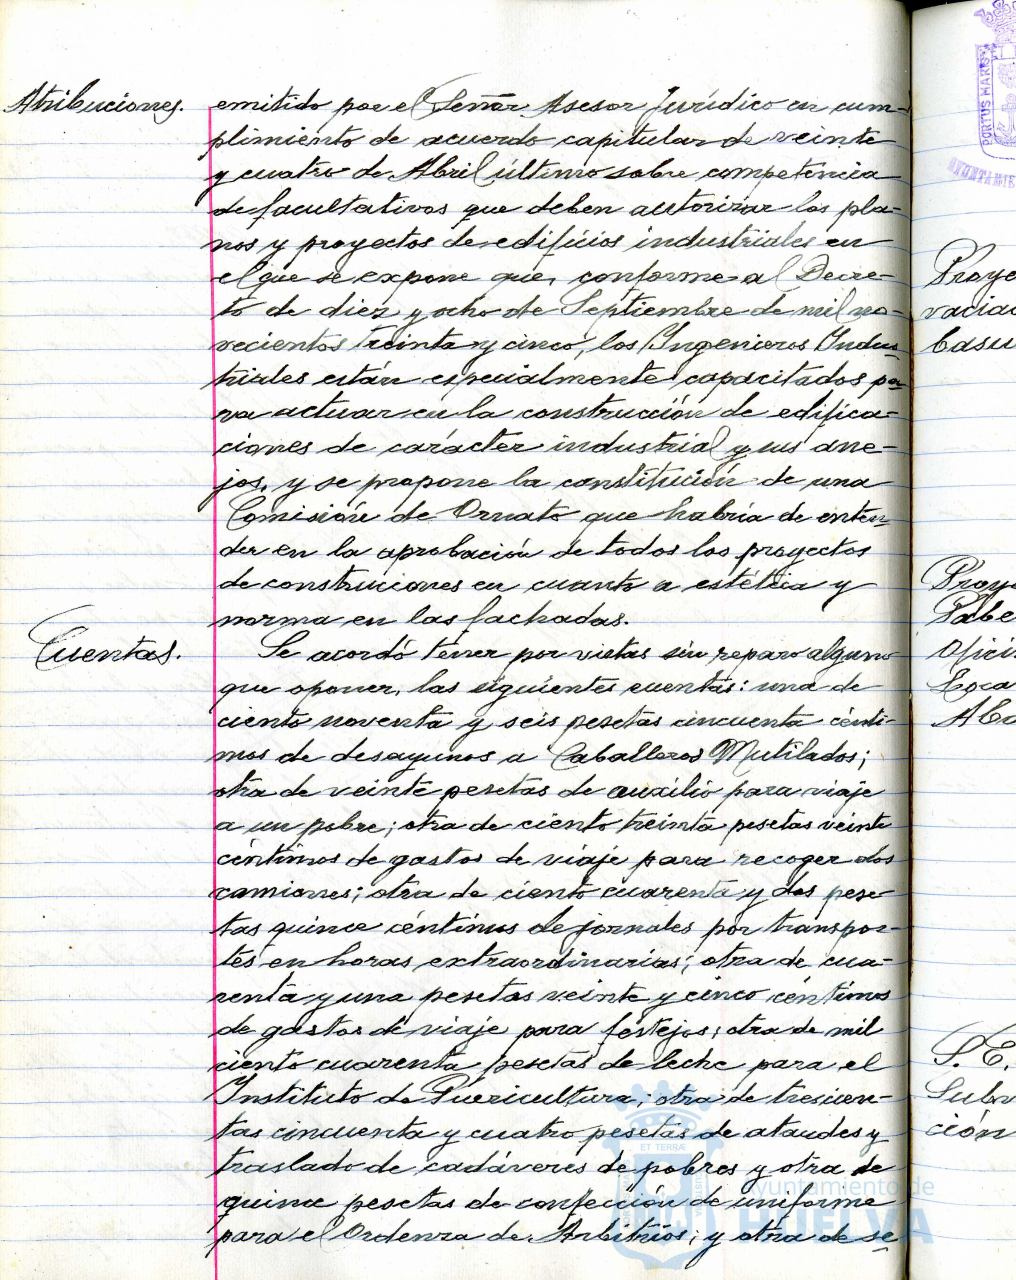 Atribuciones. emitido por el Señor Asesor Jurídico en cum-
plimiento de acuerdo capitular de veinte
y cuatro de Abril último sobre competencia
de facultativos que deben autorizar los pla-
nos y proyectos de edificios industriales en
el que se expone que, conforme a l Decre-
to de diez y ocho de Septiembre de mil no-
vecientos treinta y cinco, los Ingenieros Indus-
triales están especialmente capacitados pa-
ra actuar en la construcción de edifica-
ciones de carácter industrial y sus ane-
jos, y se propone la constitución de una
Comisión de Ornato que habría de enten-
der en la aprobación de todos los proyectos
de construciones en cuanto a estética y
norma en las fachadas.
Cuentas. Se acordó tener por vistas sin reparo alguno
que oponer, las siguientes cuentas: una de
ciento noventa y seis pesetas cincuenta cénti-
mos de desayunos a Caballeros Mutilados;
otra de veinte pesetas de auxilio para viaje
a un pobre; otra de ciento treinta pesetas veinte
céntimos de gastos de viaje para recoger dos
camiones; otra de ciento cuarenta y dos pese-
tas quince céntimos de jornales por transpor-
tes en horas extraordinarias; otra de cua-
renta y una pesetas veinte y cinco céntimos
de gastos de viaje para festejos; otra de mil
ciento cuarenta pesetas de leche para el
Instituto de Puericultura; otra de trescien-
tas cincuenta y cuatro pesetas de ataudes y
traslado de cadáveres de pobres y otra de
quince pesetas de confección de uniforme
para el Ordenza de Arbitrios; y otra de se-
PORTUS MARIS
AYUNTAMIE
Proye
vaciad
basu
Proye
Pabe
Ofici
Loca
Aba
S. E.
Subv
ción
ET TERRÆ
Ayuntamiento de
HUELVA